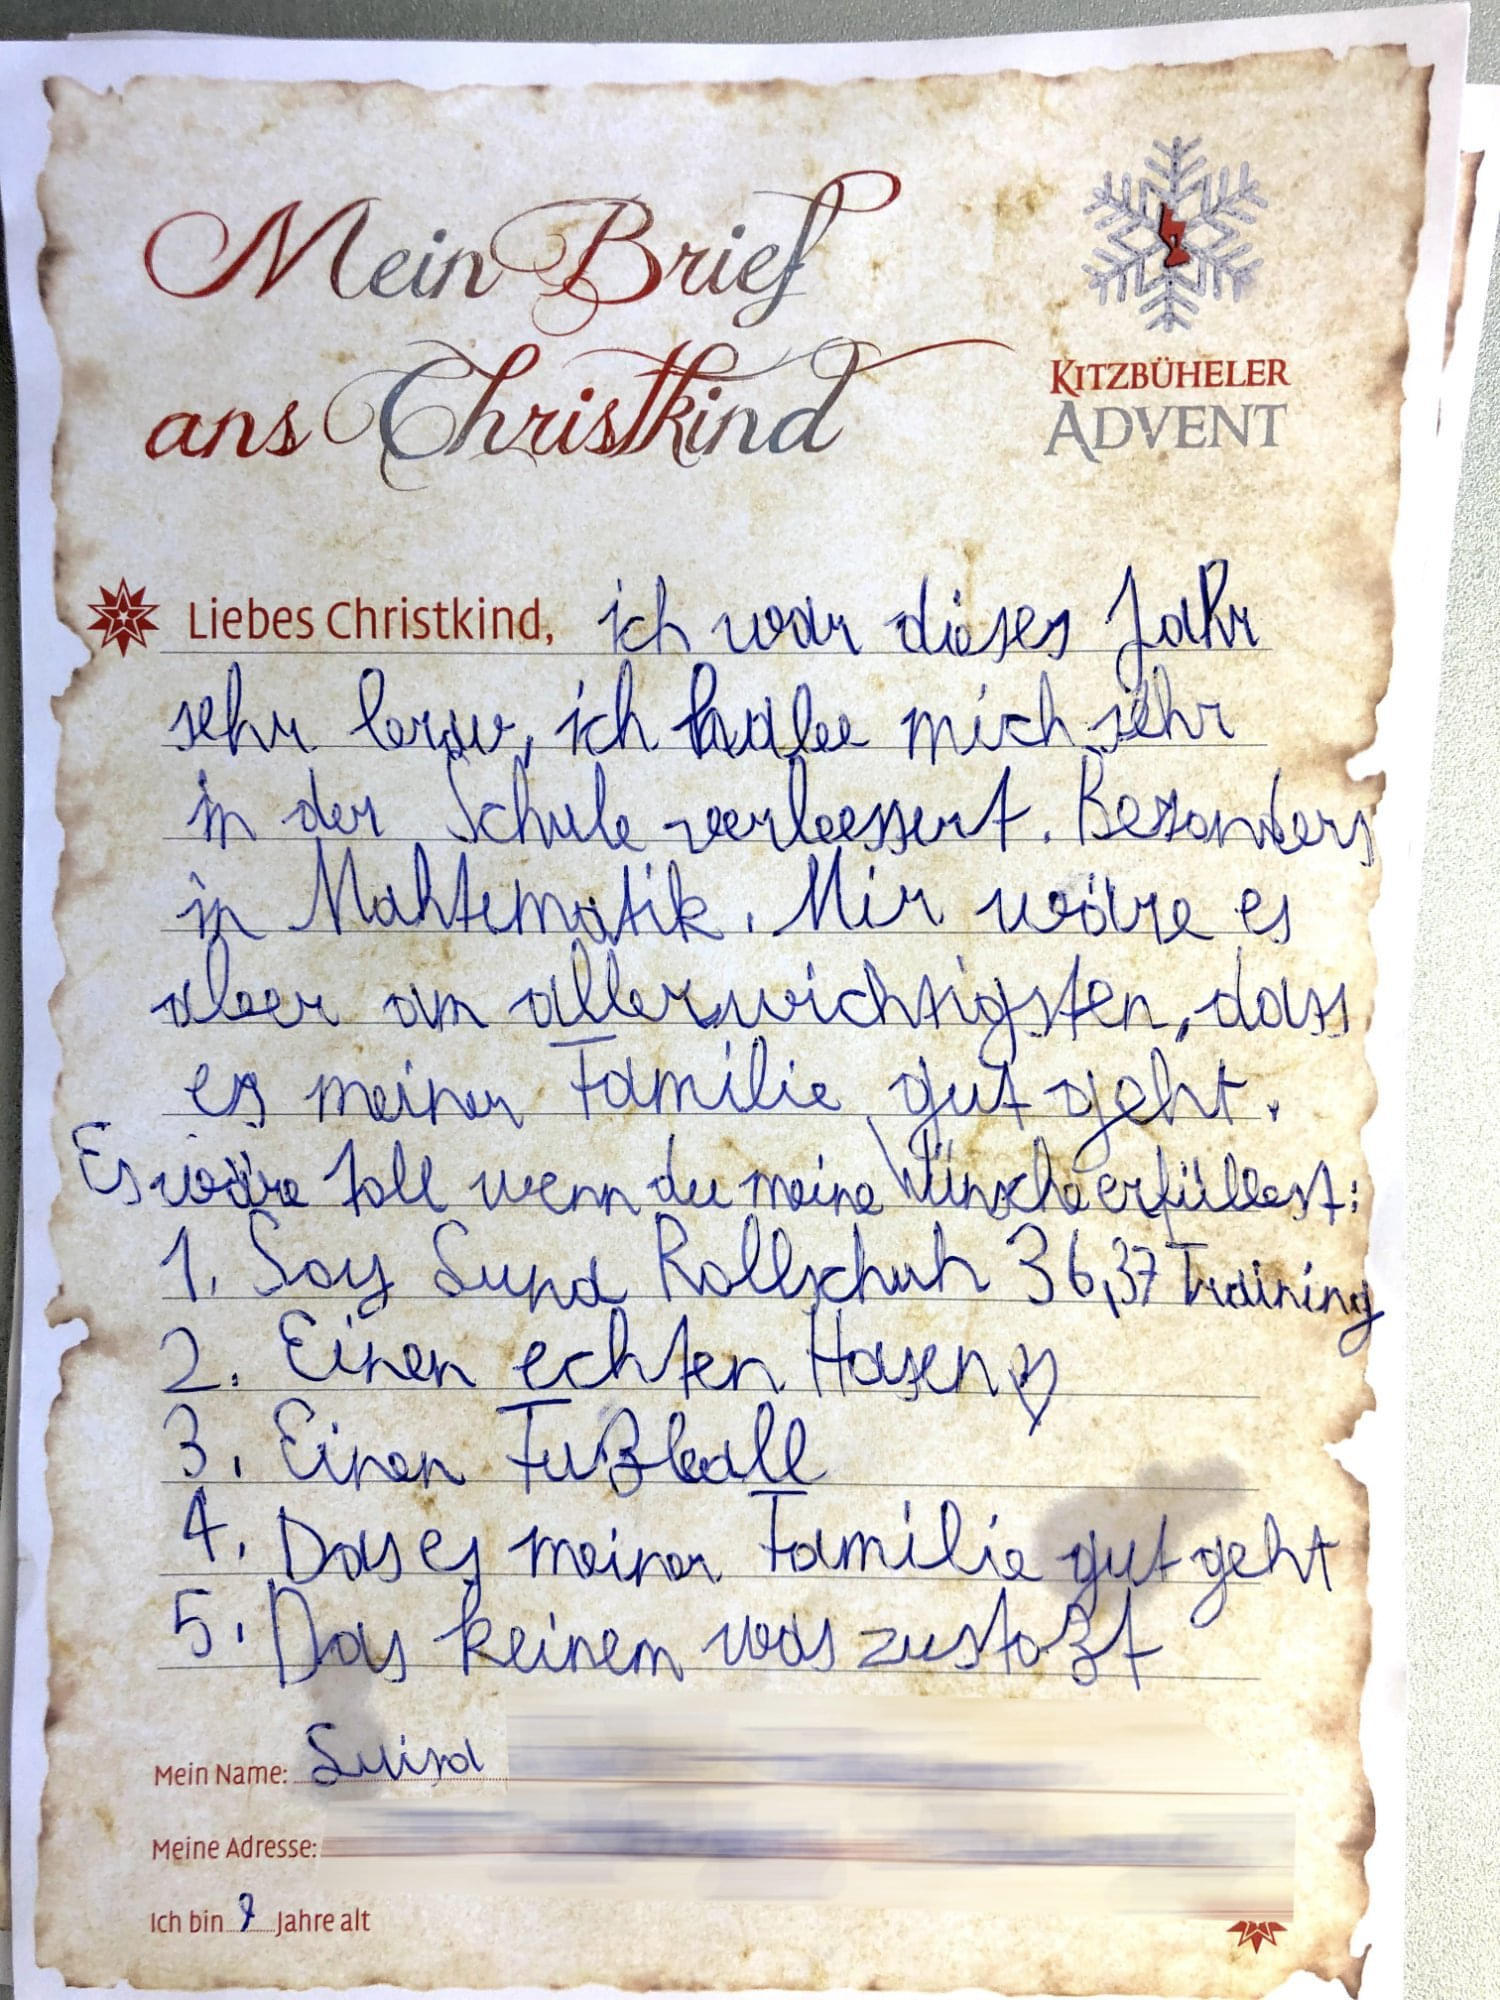 Mein Brief
ans Christkind
KITZBÜHELER
ADVENT
Liebes Christkind, ich war dieses Jahr
sehr brav, ich habe mich sehr
in der Schule verbessert. Besonders
in Mahtematik. Mir wäre es
aber am allerwichtigsten, dass
es meiner Familie gut geht.
Es wäre toll wenn du meine Wünsche erfüllest:
1. Soy Luna Rollschuh 36,37 Training
2. Einen echten Hasen
3. Einen Fußball
4. Das es meiner Familie gut geht
5. Das keinem was zustoßt
Mein Name: Luisa
Meine Adresse:
Ich bin 9 Jahre alt